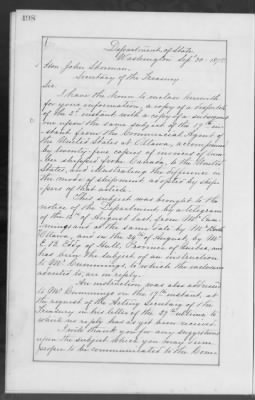 498
Department of State
Washington Sep. 30 187
Hon. John Sherman,
Secretary of the Treasury
Sir:
I have the honor to enclose herewith
for your information, a copy of a despatch
of the 2d instant with a copy of a
one upon the same subject of the 17th in-
stant from the Commercial Agent of
the United States at Ottawa, accompanied
by twenty-five copies of invoices of lum-
ber shipped from Canada, to the United
States, and illustrating the difference in
the mode of shipment adopted by ship-
pers of that article.
This subject was brought to the
notice of the Department by a telegram
of the 15th of August last, from Mr. Cum-
mings and at the same date by Mr.
Ottawa, and on the of August, by Mr.
E. B. Eddy of Hull, Province of Quebec, and
has been the subject of an instruction
to Mr. Cummings, to which the enclosure
adverted to, are in reply.
An instruction was also addressed
to Mr. Cummings on the 17th instant, at
the request of the Acting Secretary of the
Treasury in his letter of the 29th ultimo to
which no reply has as yet been received.
I will thank you for any suggestions
upon the subject which you may deem
proper to be communicated to the Com